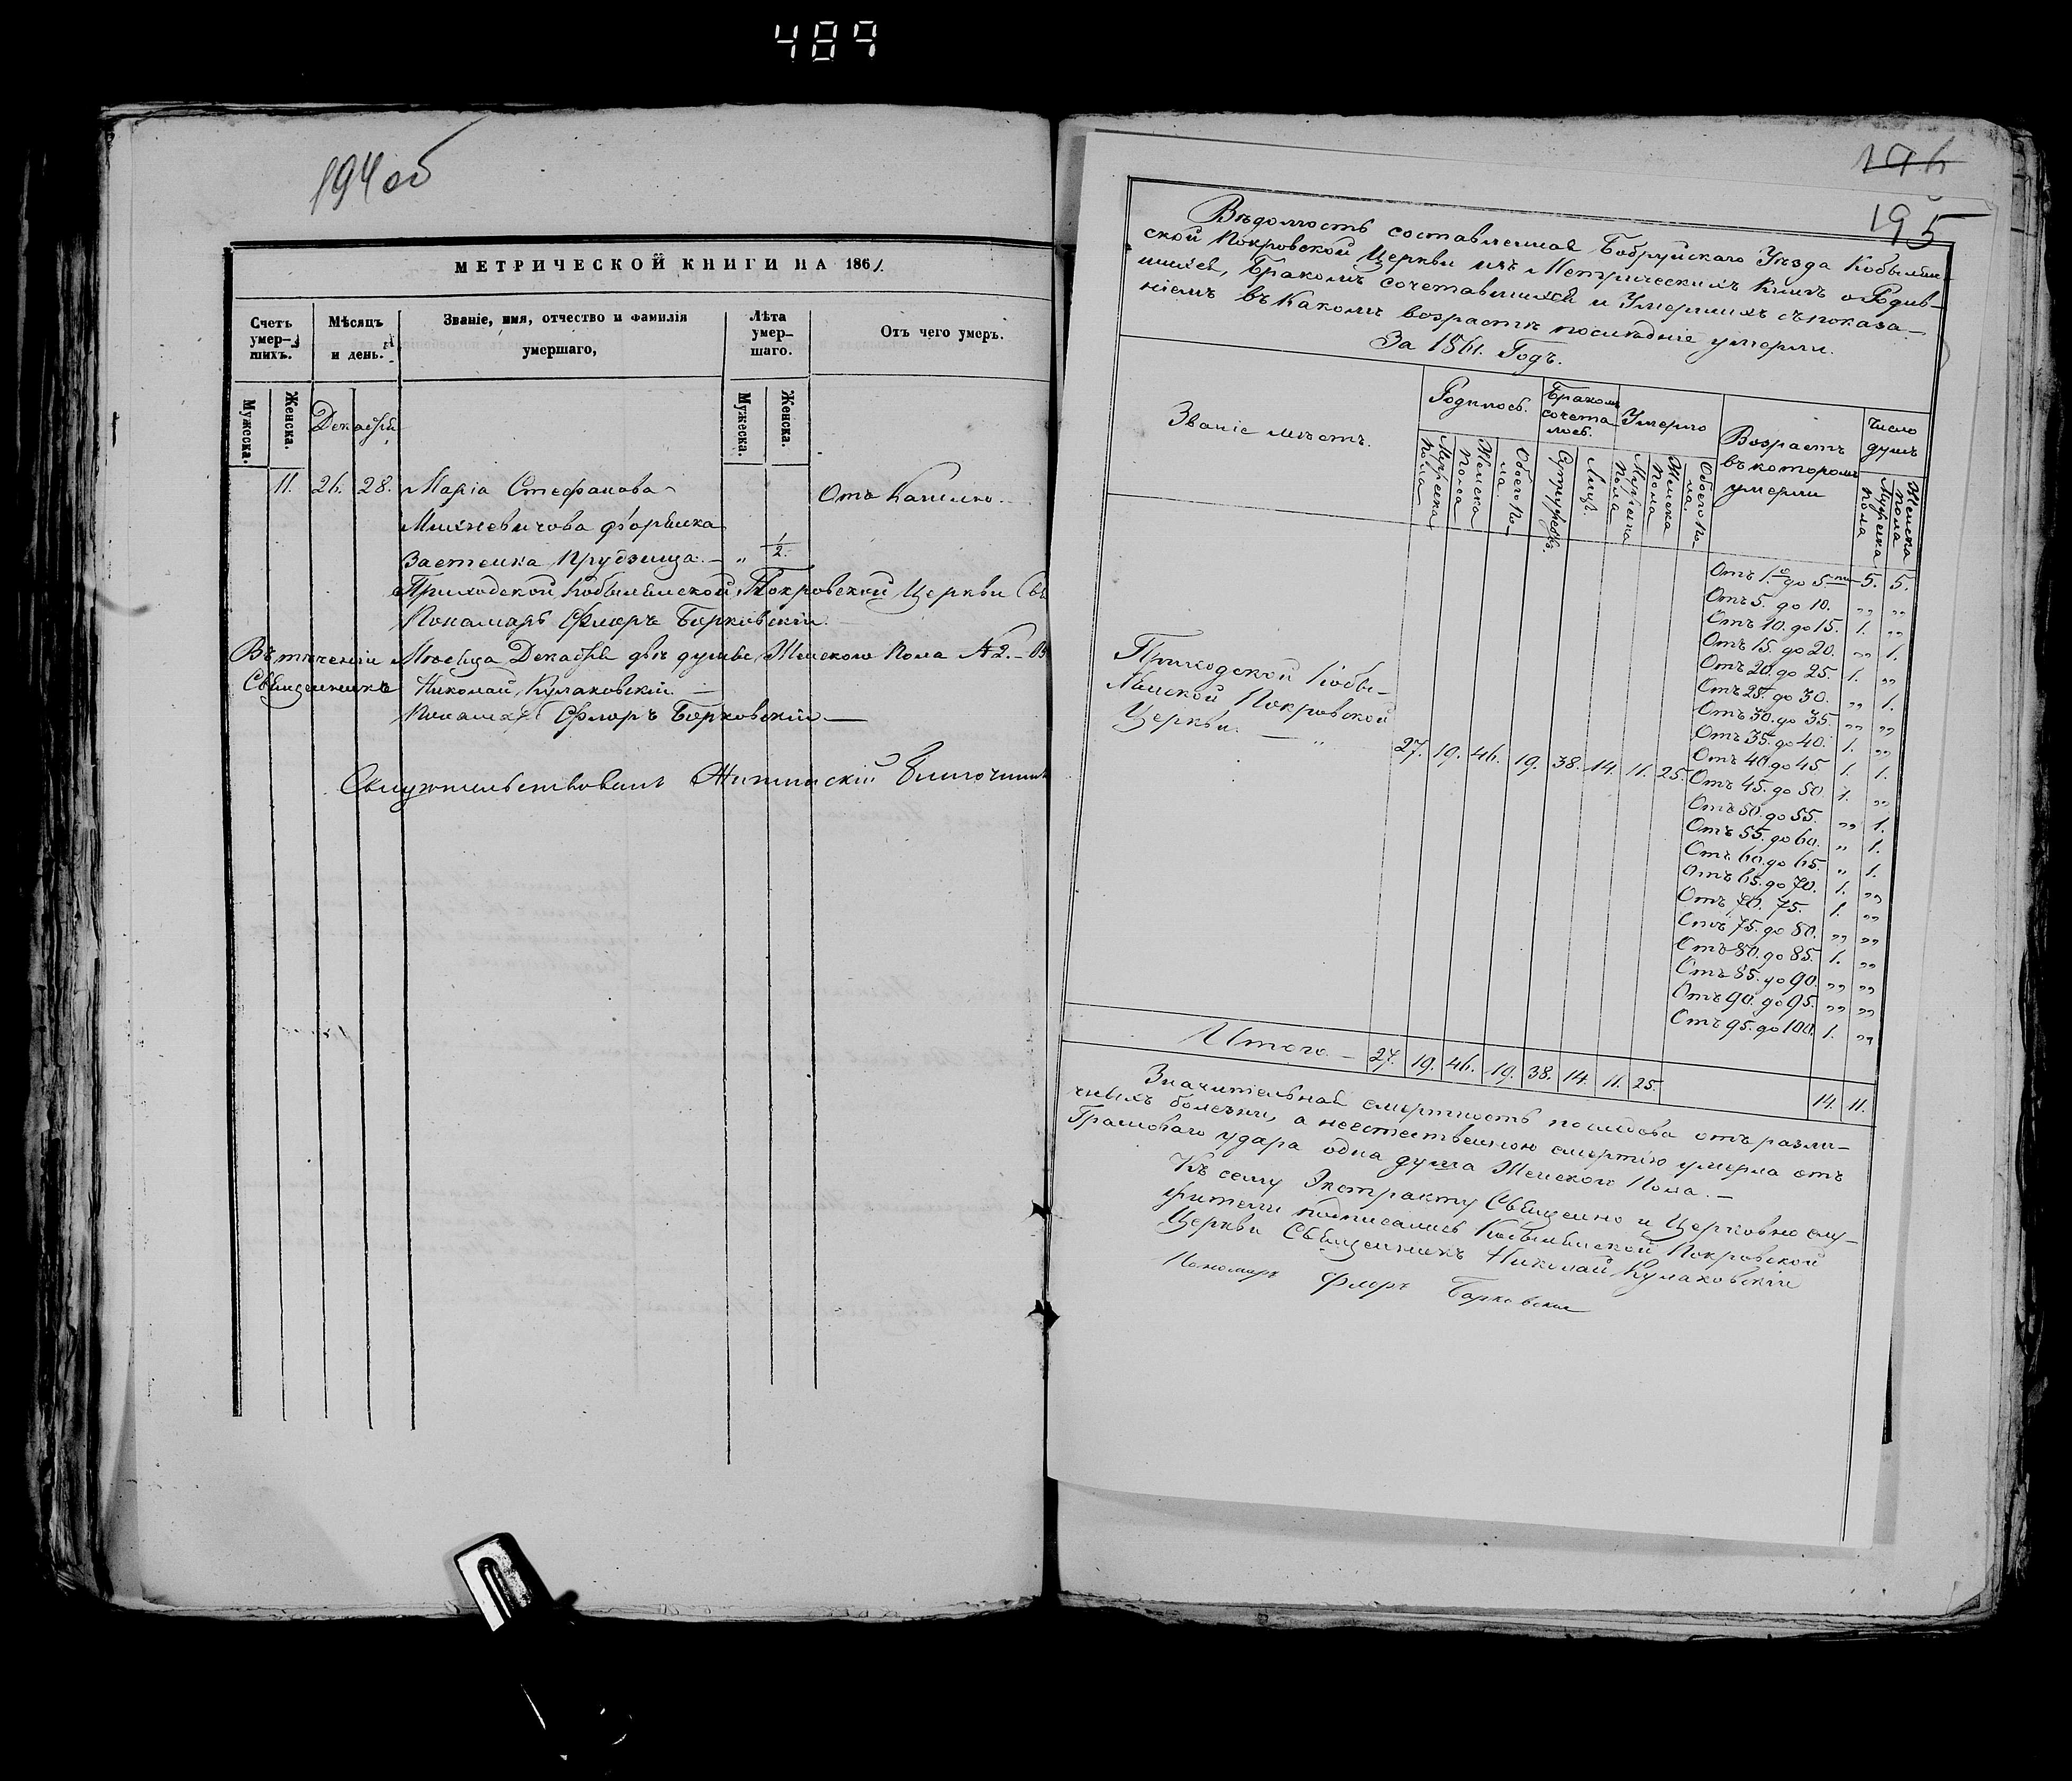 489
194 об
МЕТРИЧЕСКОЙ КНИГИ НА 1861.
Счетъ умер-шихъ.
Мѣсяцъ и день.
Званіе, имя, отчество и фамилія умершаго,
Лѣта умер-шаго.
Отъ чего умеръ.
Мужеска.
Женска.
Декабрь
Мужеска.
Женска.
11. 26. 28. Марія Стефанова Отъ Кашлю.
Михневичова дворянка
Застенка Прудзища. — „ 1/2.
Приходской Кобылянской Покровской Церкви Св
Пономарь Флоръ Барковскій
Въ теченіи Месяца Декабря двѣ душы Женскаго Пола №2. —
Священникъ Николай Кулаковскій —
Пономарь Флоръ Барковскій —
Свидѣтельствовалъ
196
195
Вѣдомость составленная Бобруйскаго Уѣзда Кобылян-
ской Покровской Церкви изъ Метрическихъ Книгъ о Родив-
шихся, Бракомъ сочетавшихся и Умершихъ съ показа-
ніемъ въ какомъ возрастѣ последніе умерли.
За 1861. Годъ.
Званіе мѣстъ.
Родилось.
Бракомъ сочета лось.
Умерло
Возрастъ въ которомъ умерли
Число душъ
Мужеска пола
Женска пола
Обоего по ла.
Супружествъ.
Лицъ.
Мужеска пола
Женска пола
Обоего по ла.
Мужеска пола
Женска пола
Отъ 1.го до 5ти 5. 5.
Отъ 5. до 10. „ „
Отъ 10. до 15. 1. „
Отъ 15. до 20. „ 1.
Отъ 20. до 25. 1. „
Отъ 25. до 30. „ 1.
Отъ 30. до 35. „ „
Отъ 35. до 40. 1. „
Отъ 40. до 45 1. 1.
Отъ 45. до 50. 1. „
Отъ 50. до 55. „ 1.
Отъ 55. до 60. „ 1.
Отъ 60. до 65. „ 1.
Отъ 65. до 70. 1. „
Отъ 70. 75. 1. „
Отъ 75. до 80. „ „
Отъ 80. до 85. 1. „
Отъ 85. до 90. „ „
Отъ 90. до 95. „ „
Отъ 95. до 100. 1. „
Приходской Кобы-
лянской Покровской
Церкви. — „ 27. 19. 46. 19. 38. 14. 11. 25.
Итого — 27. 19. 46. 19. 38. 14. 11. 25. 14. 11.
Значительная смертность последова отъ разли-
чныхъ болезни, а неестественною смертію умерла отъ
удара одна душа Женскаго Пола. —
Къ сему Экстракту Священно и Церковно слу-
жители подписались Кобылянской Покровской
Церкви Священникъ Николай Кулаковскій
Пономарь Флоръ Барковскій